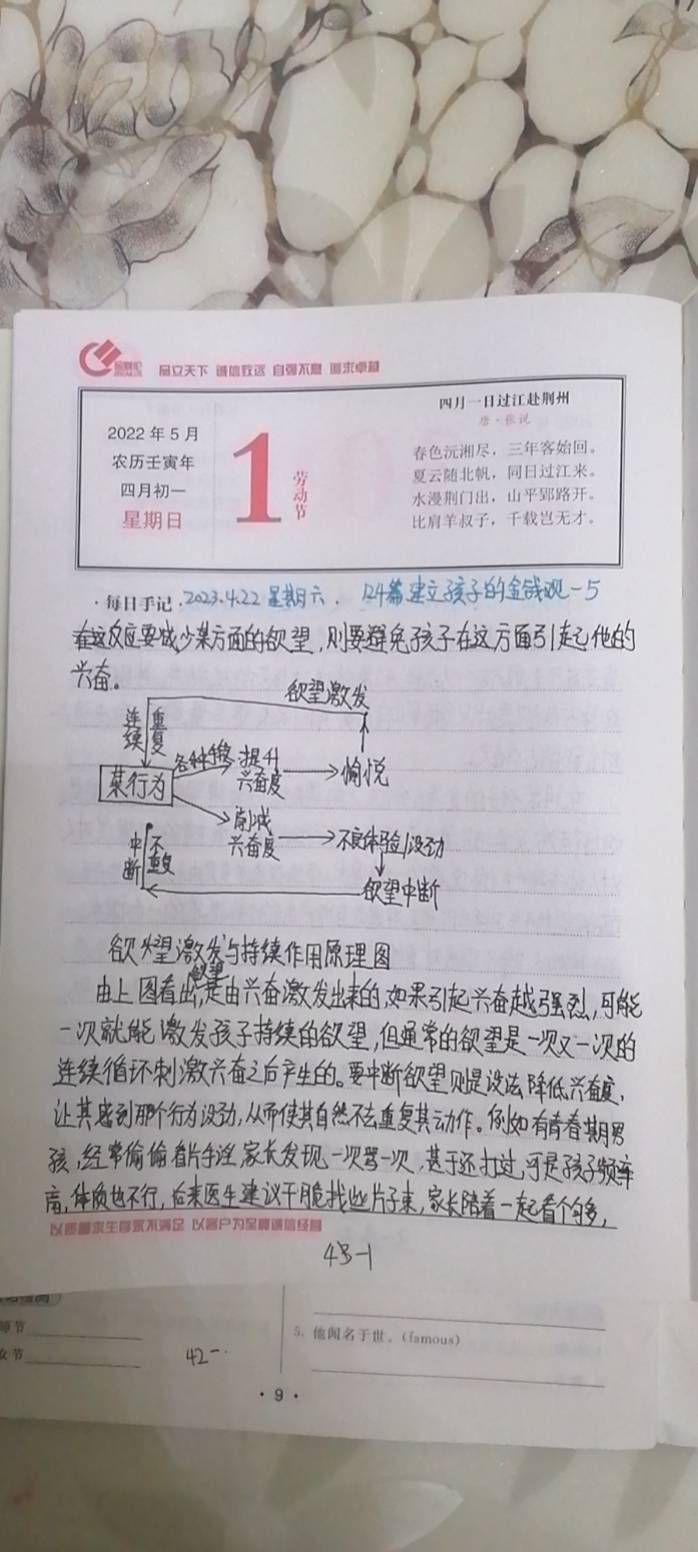 品立天下 诚信致远 自强不息 追求卓越
2022年5月
农历壬寅年
四月初一
星期日
1
劳动节
四月一日过江赴荆州
唐·张说
春色沅湘尽，三年客始回。
夏云随北帆，同日过江来。
水漫荆门出，山平郢路开。
比肩羊叔子，千载岂无才。
·每日手记 2023.4.22 星期六 . 124篇 建立孩子的金钱观-5
在这反应要减少某方面的欲望,则要避免孩子在这方面引起他的
兴奋。
欲望激发
连续
重复
某行为
各种
提升
兴奋度
愉悦
削减
兴奋度
不良体验/没劲
中断
不重复
欲望中断
欲望激发与持续作用原理图
由上图看出,欲望是由兴奋激发出来的,如果引起兴奋越强烈,可能
一次就能激发孩子持续的欲望,但通常的欲望是一次又一次的
连续循环刺激兴奋之后产生的。要中断欲望则是设法降低兴奋度,
让其感到那个行为没劲,从而使其自然不去重复其动作。例如有青春期男
孩,经常偷偷看片手淫,家长发现一次骂一次,甚于还打过,可是孩子频率
高,体质也不行,后来医生建议干脆找些片子来,家长陪着一起看个够多,
以质量求生存永不满足 以客户为至尊诚信经营
43-1
师节
女节
42-
5. 他闻名于世。(famous)
·9·